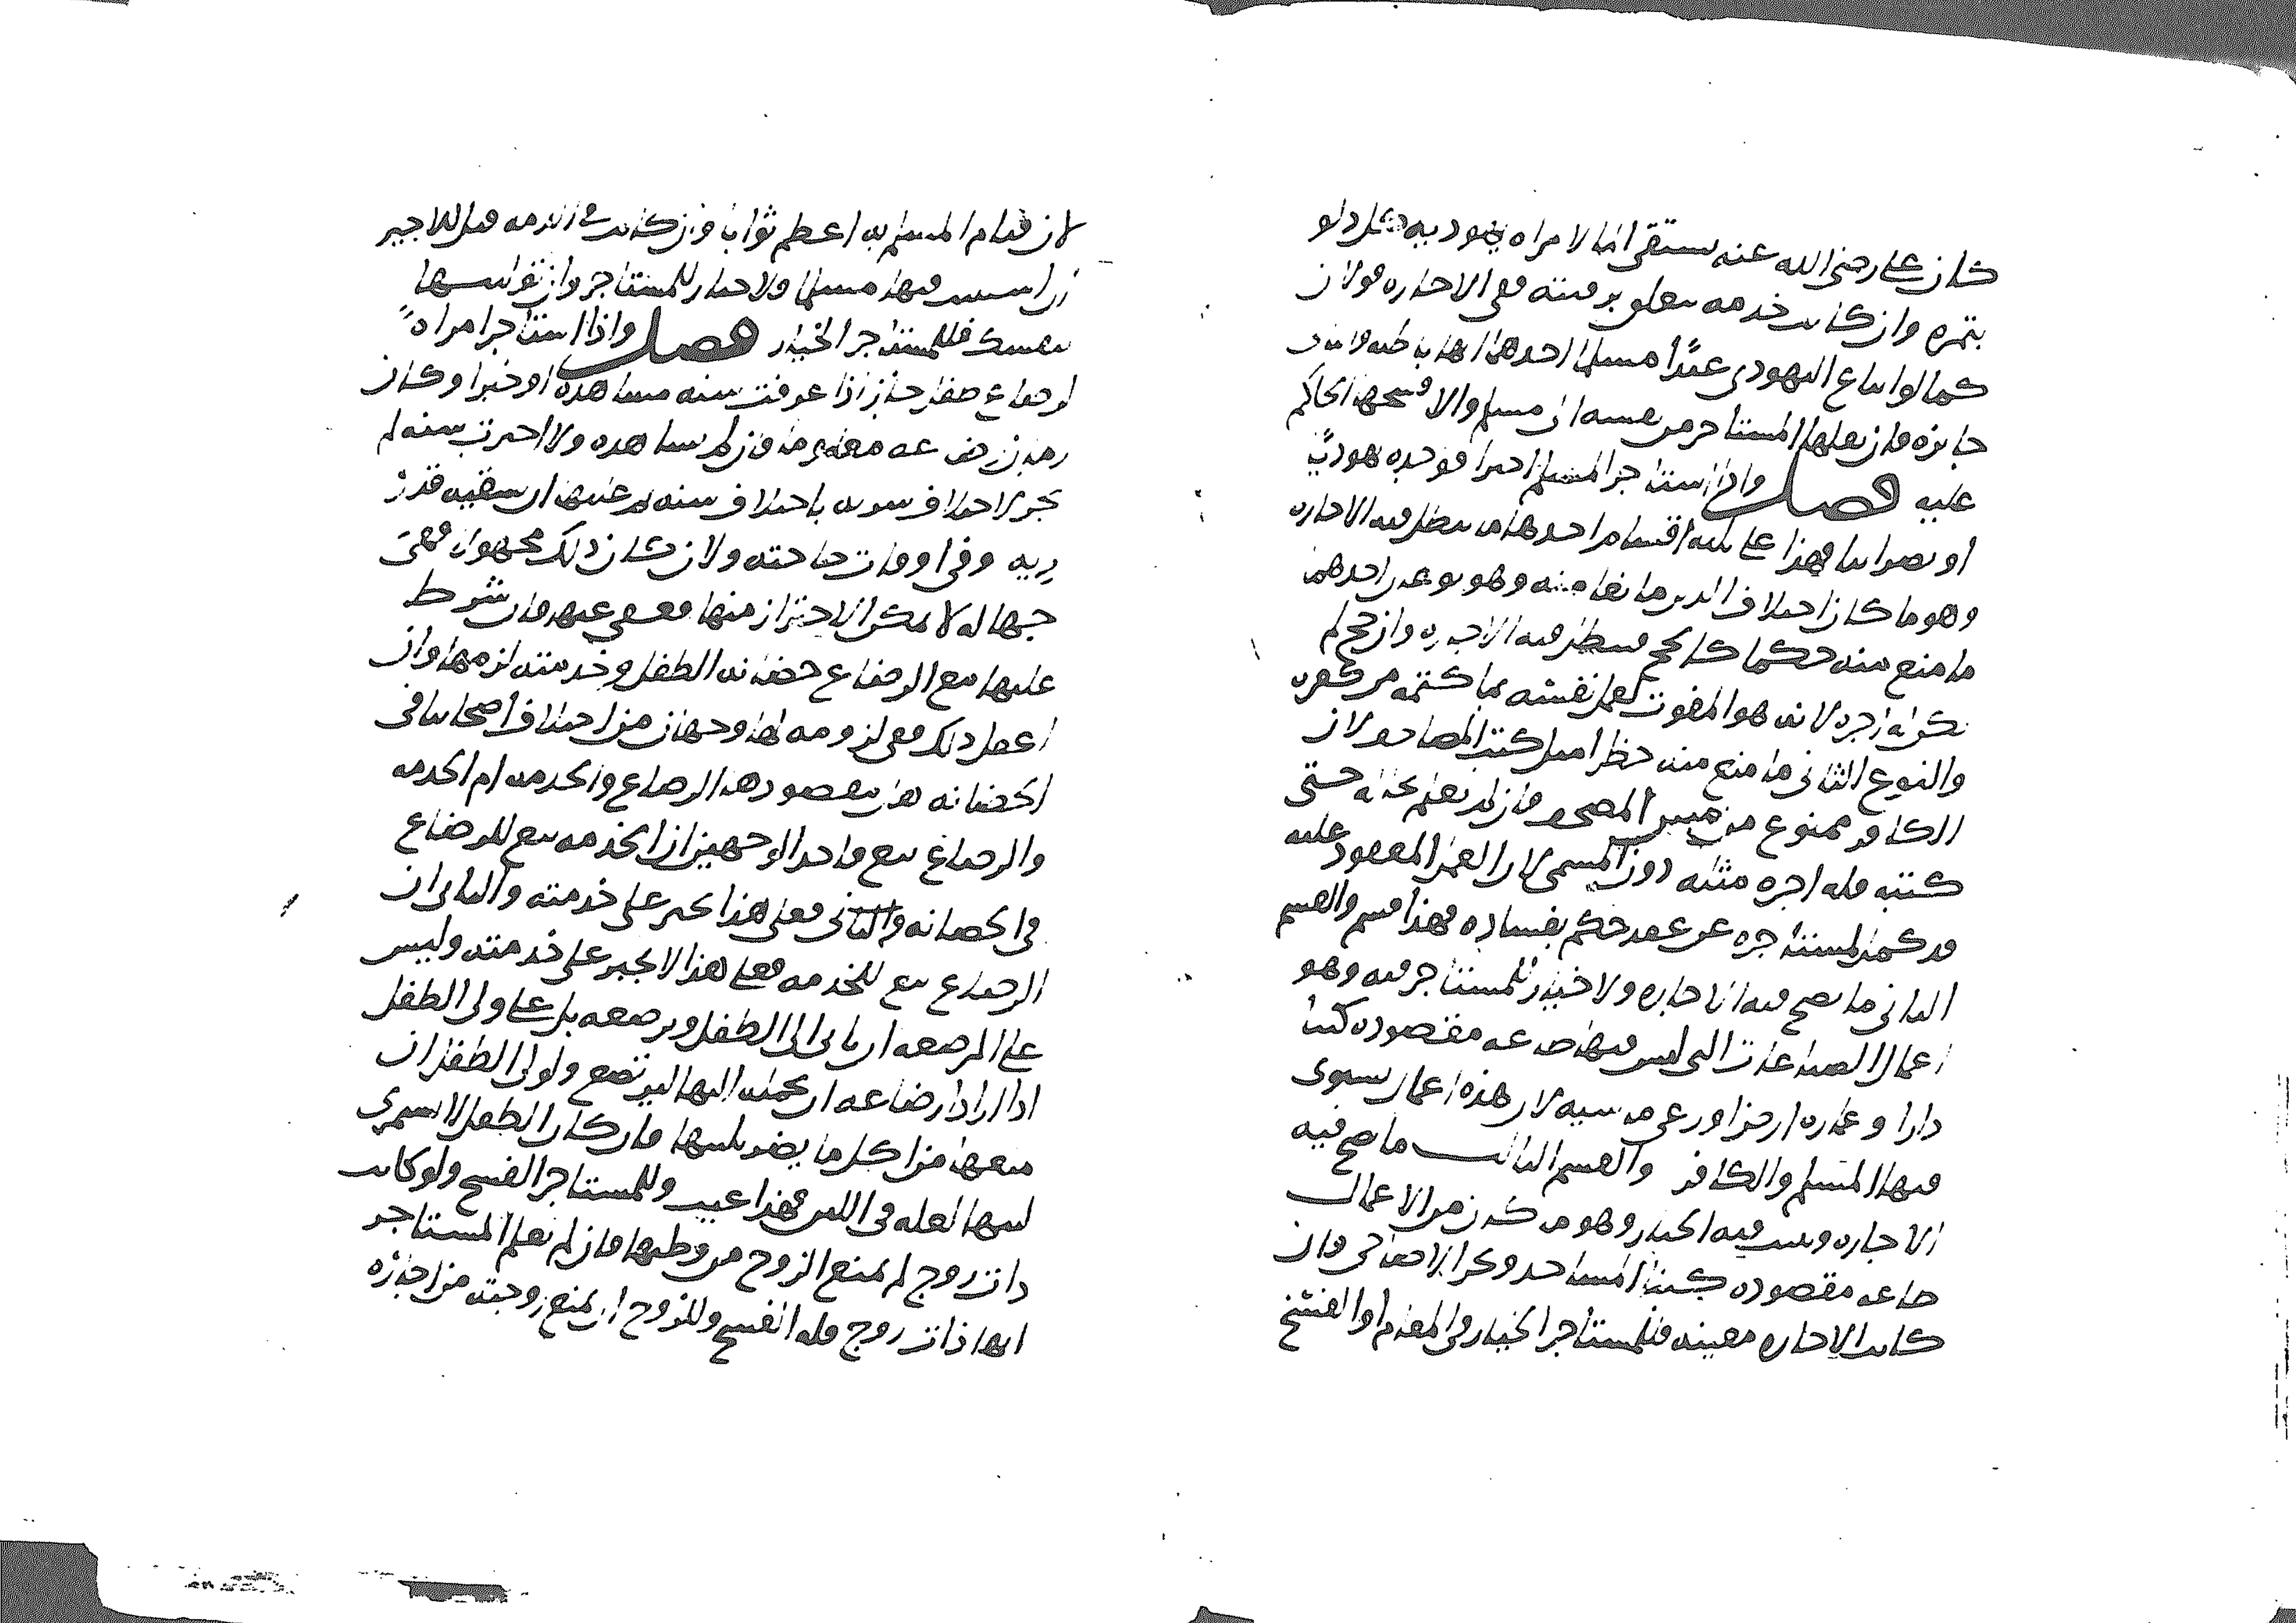 كان علي رضي الله عنه يستقي الما لامراه يهوديه كل دلو
بتمره وان كانت خدمه تتعلق برقبته ففي الاجاره قولان
كما لو ابتاع اليهودي عبدًا مسلما احدهما انها باطله والثاني
جايزه فان نقلها المستاجر من نفسه الى مسلم والا فسخها الحاكم
عليه فصل واذا استاجر المسلم اجيرا فوجده يهوديًا
او نصرانيا فهذا على ثلثه اقسام احدها ما تبطل فيه الاجاره
وهو ما كان اختلاف الدين مانعا منه وهو نوعان احدهما
ما منع منه حكما كالحج فتبطل فيه الاجاره وان حج لم
تكن له اجره لانه هو المفوت لعمل نفسه بما كتمه من كفره
والنوع الثاني ما منع منه حظرا مثل كتب المصاحف لان
الكافر ممنوع من مس المصحف فان لم يعلم بحاله حتى
كتبه فله اجره مثله دون المسمى لان العمل المعقود عليه
قد كمل لمستاجره عن عقد حكم بفساده فهذا قسم والقسم
الثاني ما تصح فيه الاجاره ولا خيار للمستاجر فيه وهو
اعمال الصناعات التي ليس فيها طاعه مقصوده كبنا
دارا وعماره ارض او رعي ماشيه لان هذه اعمال يستوي
فيها المسلم والكافر والقسم الثالث ما صح فيه
الاجاره ويثبت فيه الخيار وهو ما كان من الاعمال
طاعه مقصوده كبنا المساجد ونحر الاضاحي فان
كانت الاجاره معينه فللمستاجر الخيار في المقام او الفسخ
لان قيام المسلم به اعظم ثوابا وان كانت في الذمه قيل للاجير
ان استنبت فيها مسلما فلا خيار للمستاجر وان توليتها
بنفسك فللمستاجر الخيار فصل واذا استاجر امراهً
لرضاع طفل جاز اذا عرفت سنه مشاهده او خبرا وكان
زمان رضاعه معلوما فان لم تشاهده ولا اخبرت بسنه لم
يجز لاختلاف شربه باختلاف سنه ثم عليها ان تسقيه قدر
ريه وفي اوقات حاجته ولان كان ذلك مجهولا فهي
جهاله لا يمكن الاحتراز منها فعفي عنها فان شرط
عليها مع الرضاع حضانه الطفل وخدمته لزمها وان
اغفل ذلك ففي لزومه لها وجهان من اختلاف اصحابنا في
الحضانه هل المقصود هنا الرضاع والخدمه ام الخدمه
والرضاع تبع فاحد الوجهين ان الخدمه تبع للرضاع
في الحضانه والثاني فعلى هذا تجبر على خدمته والثاني ان
الرضاع تبع للخدمه فعلى هذا لا تجبر على خدمته وليس
على المرضعه ان تاتي الى الطفل وترضعه بل على ولي الطفل
اذا اراد ارضاعه ان يحمله اليها ليرتضع ولولي الطفل ان
يمنعها من اكل ما يضر بلبنها فان كان الطفل لا يستمري
لبنها لعله في اللبن فهذا عيب وللمستاجر الفسخ ولو كانت
ذات زوج لم يمنع الزوج من وطيها فان لم يعلم المستاجر
انها ذات زوج فله الفسخ وللزوج ان يمنع زوجته من اجاره